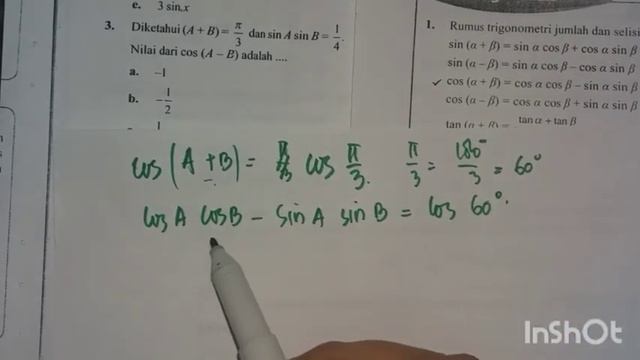 e. 3 sin x
3. Diketahui (A + B) = π/3 dan sin A sin B = 1/4.
Nilai dari cos (A – B) adalah ....
a. –1
b. –1/2
1. Rumus trigonometri jumlah dan selisi
sin (α + β) = sin α cos β + cos α sin β
sin (α – β) = sin α cos β – cos α sin β
✓ cos (α + β) = cos α cos β – sin α sin β
cos (α – β) = cos α cos β + sin α sin β
tan (α + β) = tan α + tan β
cos (A + B) = cos π/3. π/3 = 180°/3 = 60°
cos A cos B – sin A sin B = cos 60°.
InShOt